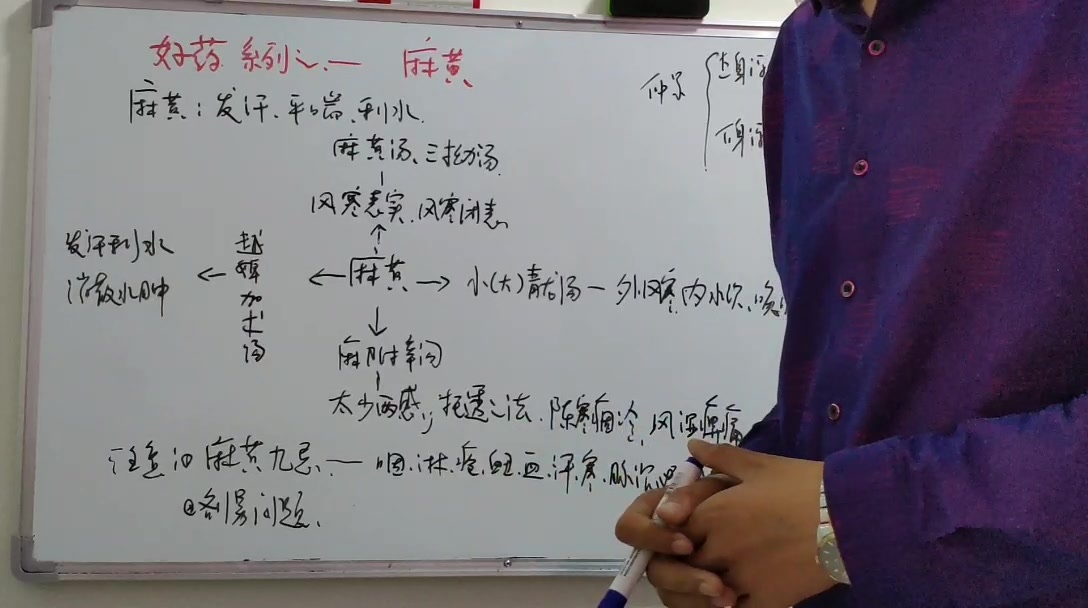 好药系列之一 麻黄
麻黄：发汗、平喘、利水.
麻黄汤、三拗汤
风寒表实、风寒闭表
仲景
上身
下身
发汗利水
消散水肿
越婢加术汤
麻黄
小(大)青龙汤一外风寒内水饮、
麻附辛汤
太少两感，托透之法、陈寒痼冷、风湿痹痛
注意①麻黄九忌、一咽、淋、疮、衄、血、汗、寒、脉沉
②剂量问题、